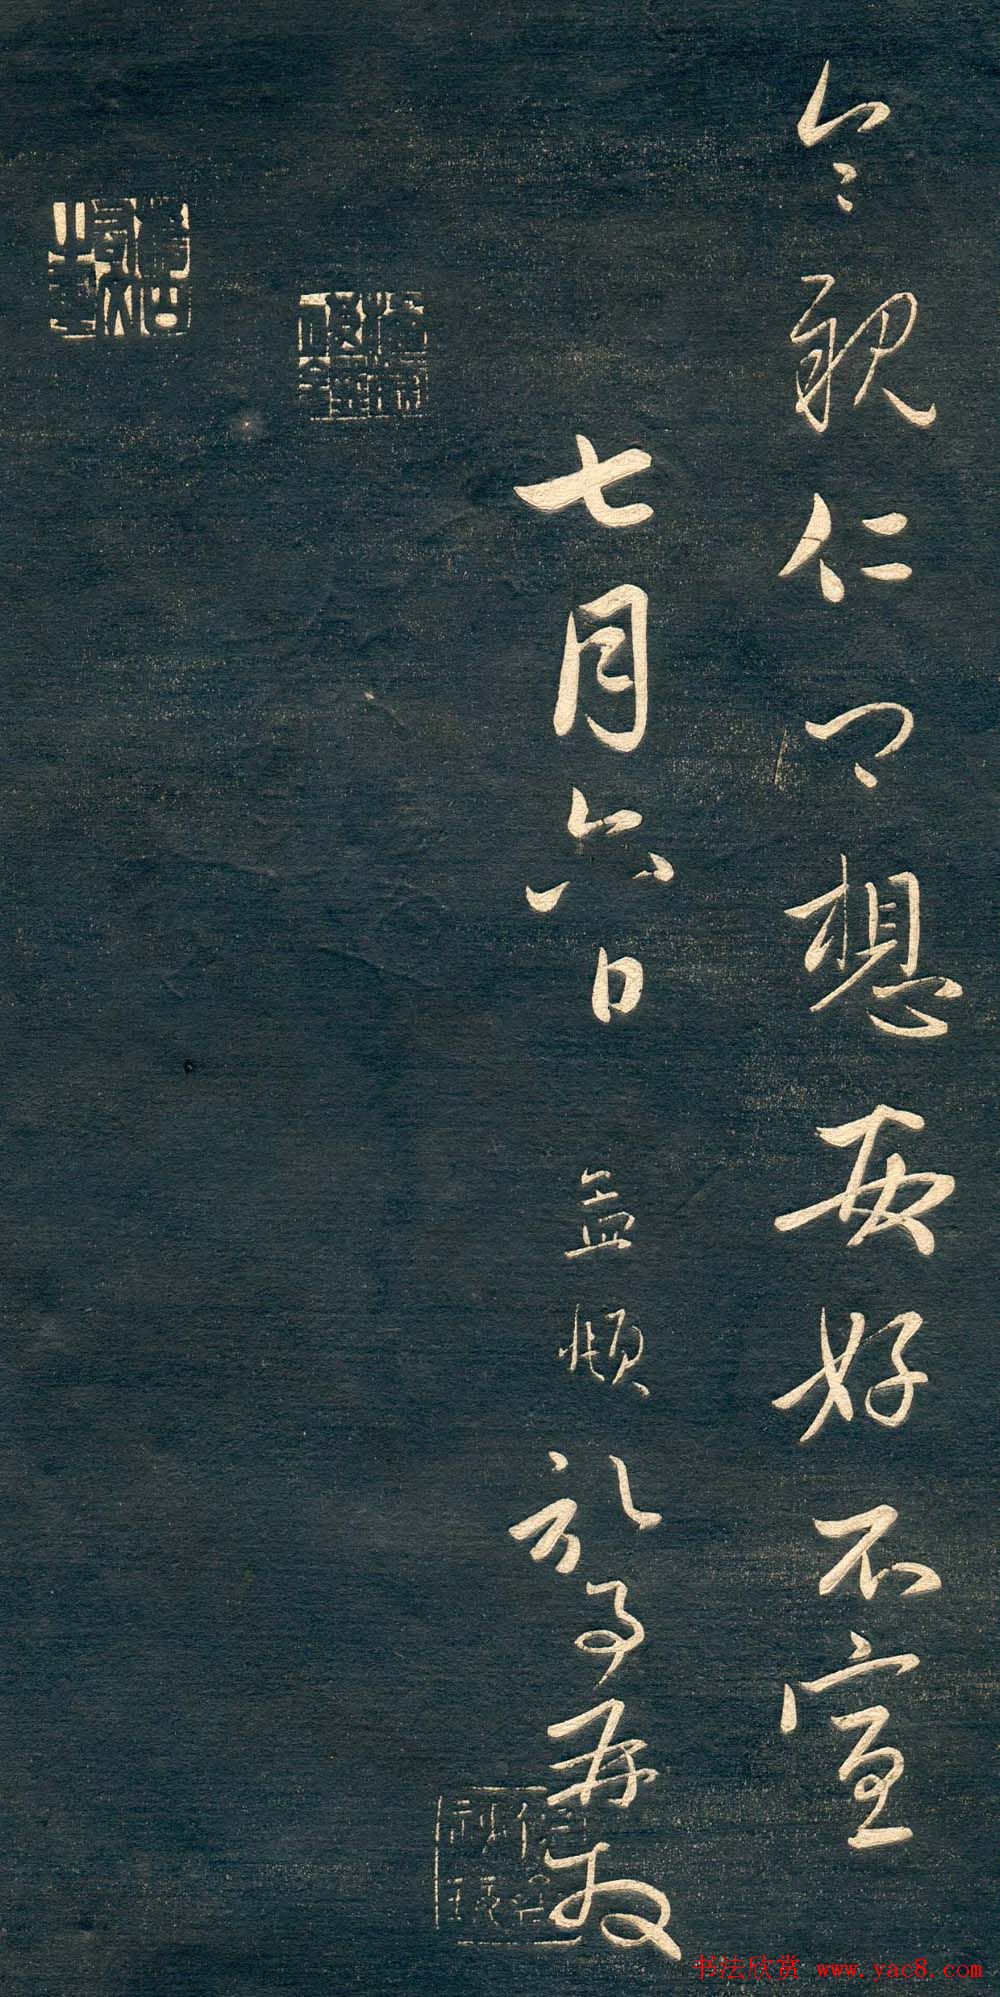 令親仁卿想安好不宣
七月六日孟頫於再拜
书法欣赏 www.yac8.com